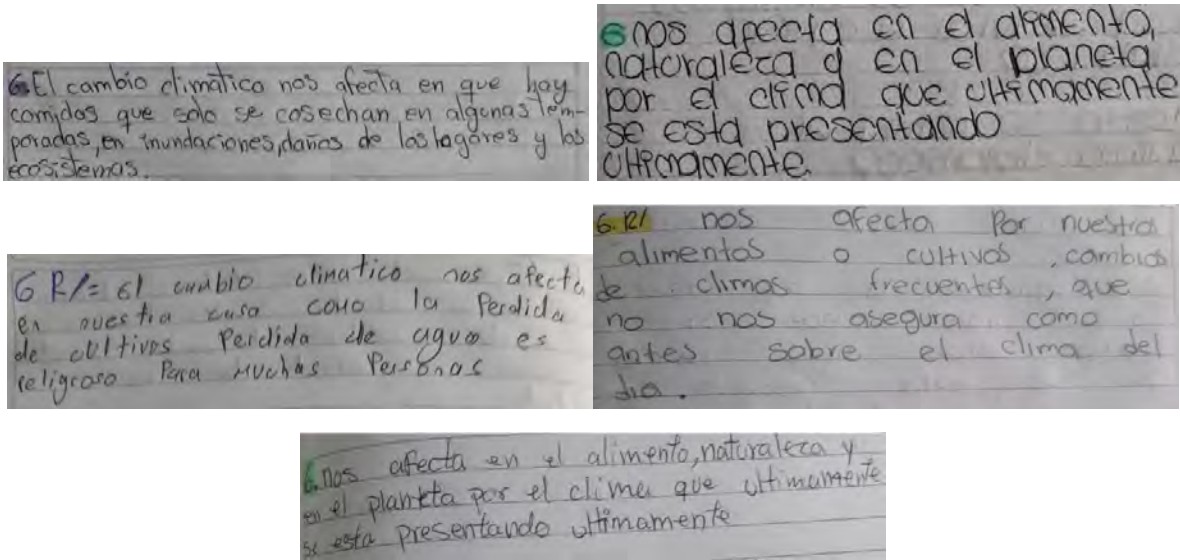 6. El cambio climático nos afecta en que hay
comidas que solo se cosechan en algunas tem-
poradas, en inundaciones, daños de los hogares y los
ecosistemas.
6 nos afecta en el alimento,
naturaleza y en el planeta
por el clima que ultimamente
se esta presentando
ultimamente.
6 R/= el cambio climatico nos afecta
en nuestra casa como la Perdida
de cultivos Perdida de agua es
peligroso Para muchas Personas
6. R/ nos afecta Por nuestros
alimentos o cultivos, cambios
de climas frecuentes, que
no nos asegura como
antes sobre el clima del
dia.
6. nos afecta en el alimento, naturaleza y
en el planeta por el clima que ultimamente
se esta presentando ultimamente